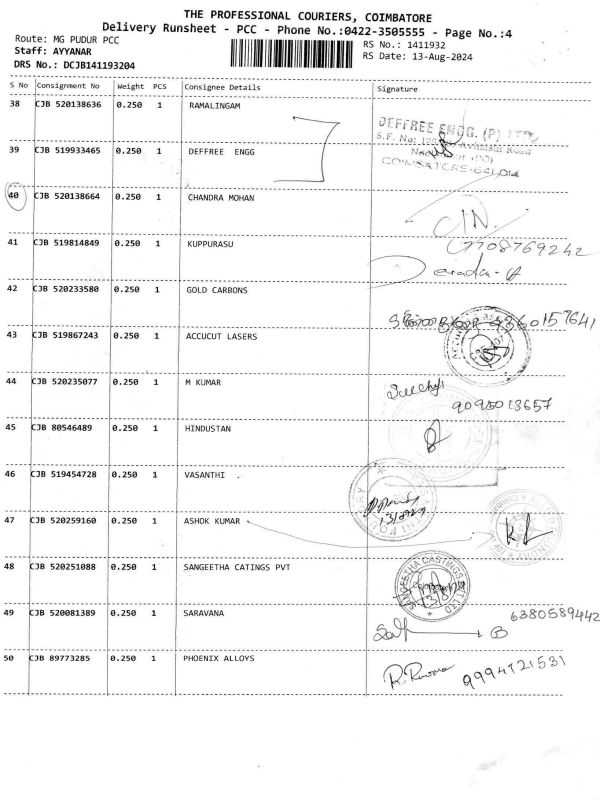 THE PROFESSIONAL COURIERS, COIMBATORE
Delivery Runsheet - PCC - Phone No.:0422-3505555 - Page No.:4
Route: MG PUDUR PCC
RS No.: 1411932
Staff: AYYANAR
RS Date: 13-Aug-2024
DRS No.: DCJB141193204
S No Consignment No Weight PCS Consignee Details Signature
38 CJB 520138636 0.250 1 RAMALINGAM
DEFFREE ENGG. (P)
39 CJB 519933465 0.250 1 DEFFREE ENGG
40 CJB 520138664 0.250 1 CHANDRA MOHAN
41 CJB 519814849 0.250 1 KUPPURASU
7708769242
42 CJB 520233580 0.250 1 GOLD CARBONS
9360157641
43 CJB 519867243 0.250 1 ACCUCUT LASERS
44 CJB 520235077 0.250 1 M KUMAR
45 CJB 80546489 0.250 1 HINDUSTAN
46 CJB 519454728 0.250 1 VASANTHI .
47 CJB 520259160 0.250 1 ASHOK KUMAR
48 CJB 520251088 0.250 1 SANGEETHA CATINGS PVT
SANGEETHA CASTINGS PVT LTD
49 CJB 520081389 0.250 1 SARAVANA
6380589442
50 CJB 89773285 0.250 1 PHOENIX ALLOYS
9994721531